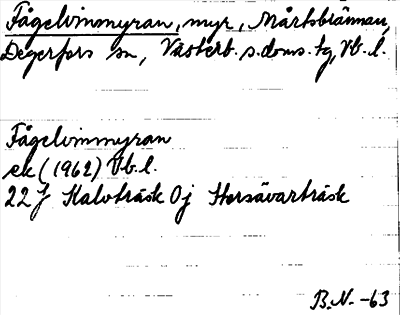 Fågelvinmyran, myr, Mårtsbrännan,
Degerfors sn, Västerb. s. doms. tg, Vb. l.
Fågelvinmyran
ek (1962) Vb. l.
22 J Kalvträsk 0j Hersävarträsk
B.N. -63